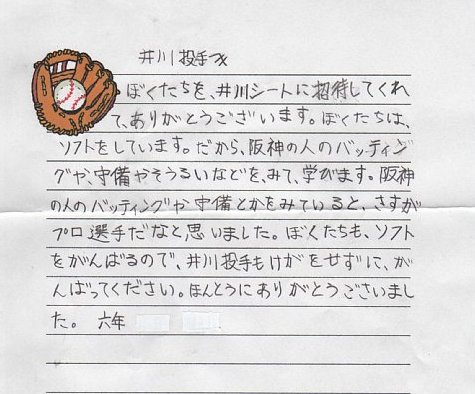 井川投手へ
ぼくたちを、井川シートに招待してくれ
て、ありがとうございます。ぼくたちは、
ソフトをしています。だから、阪神の人のバッティン
グや、守備やそうるいなどを、みて、学がます。阪神
の人のバッティングや守備とかをみていると、さすが
プロ選手だなと思いました。ぼくたちも、ソフト
をがんばるので、井川投手もけがをせずに、が
んばってください。ほんとうにありがとうございまし
た。 六年